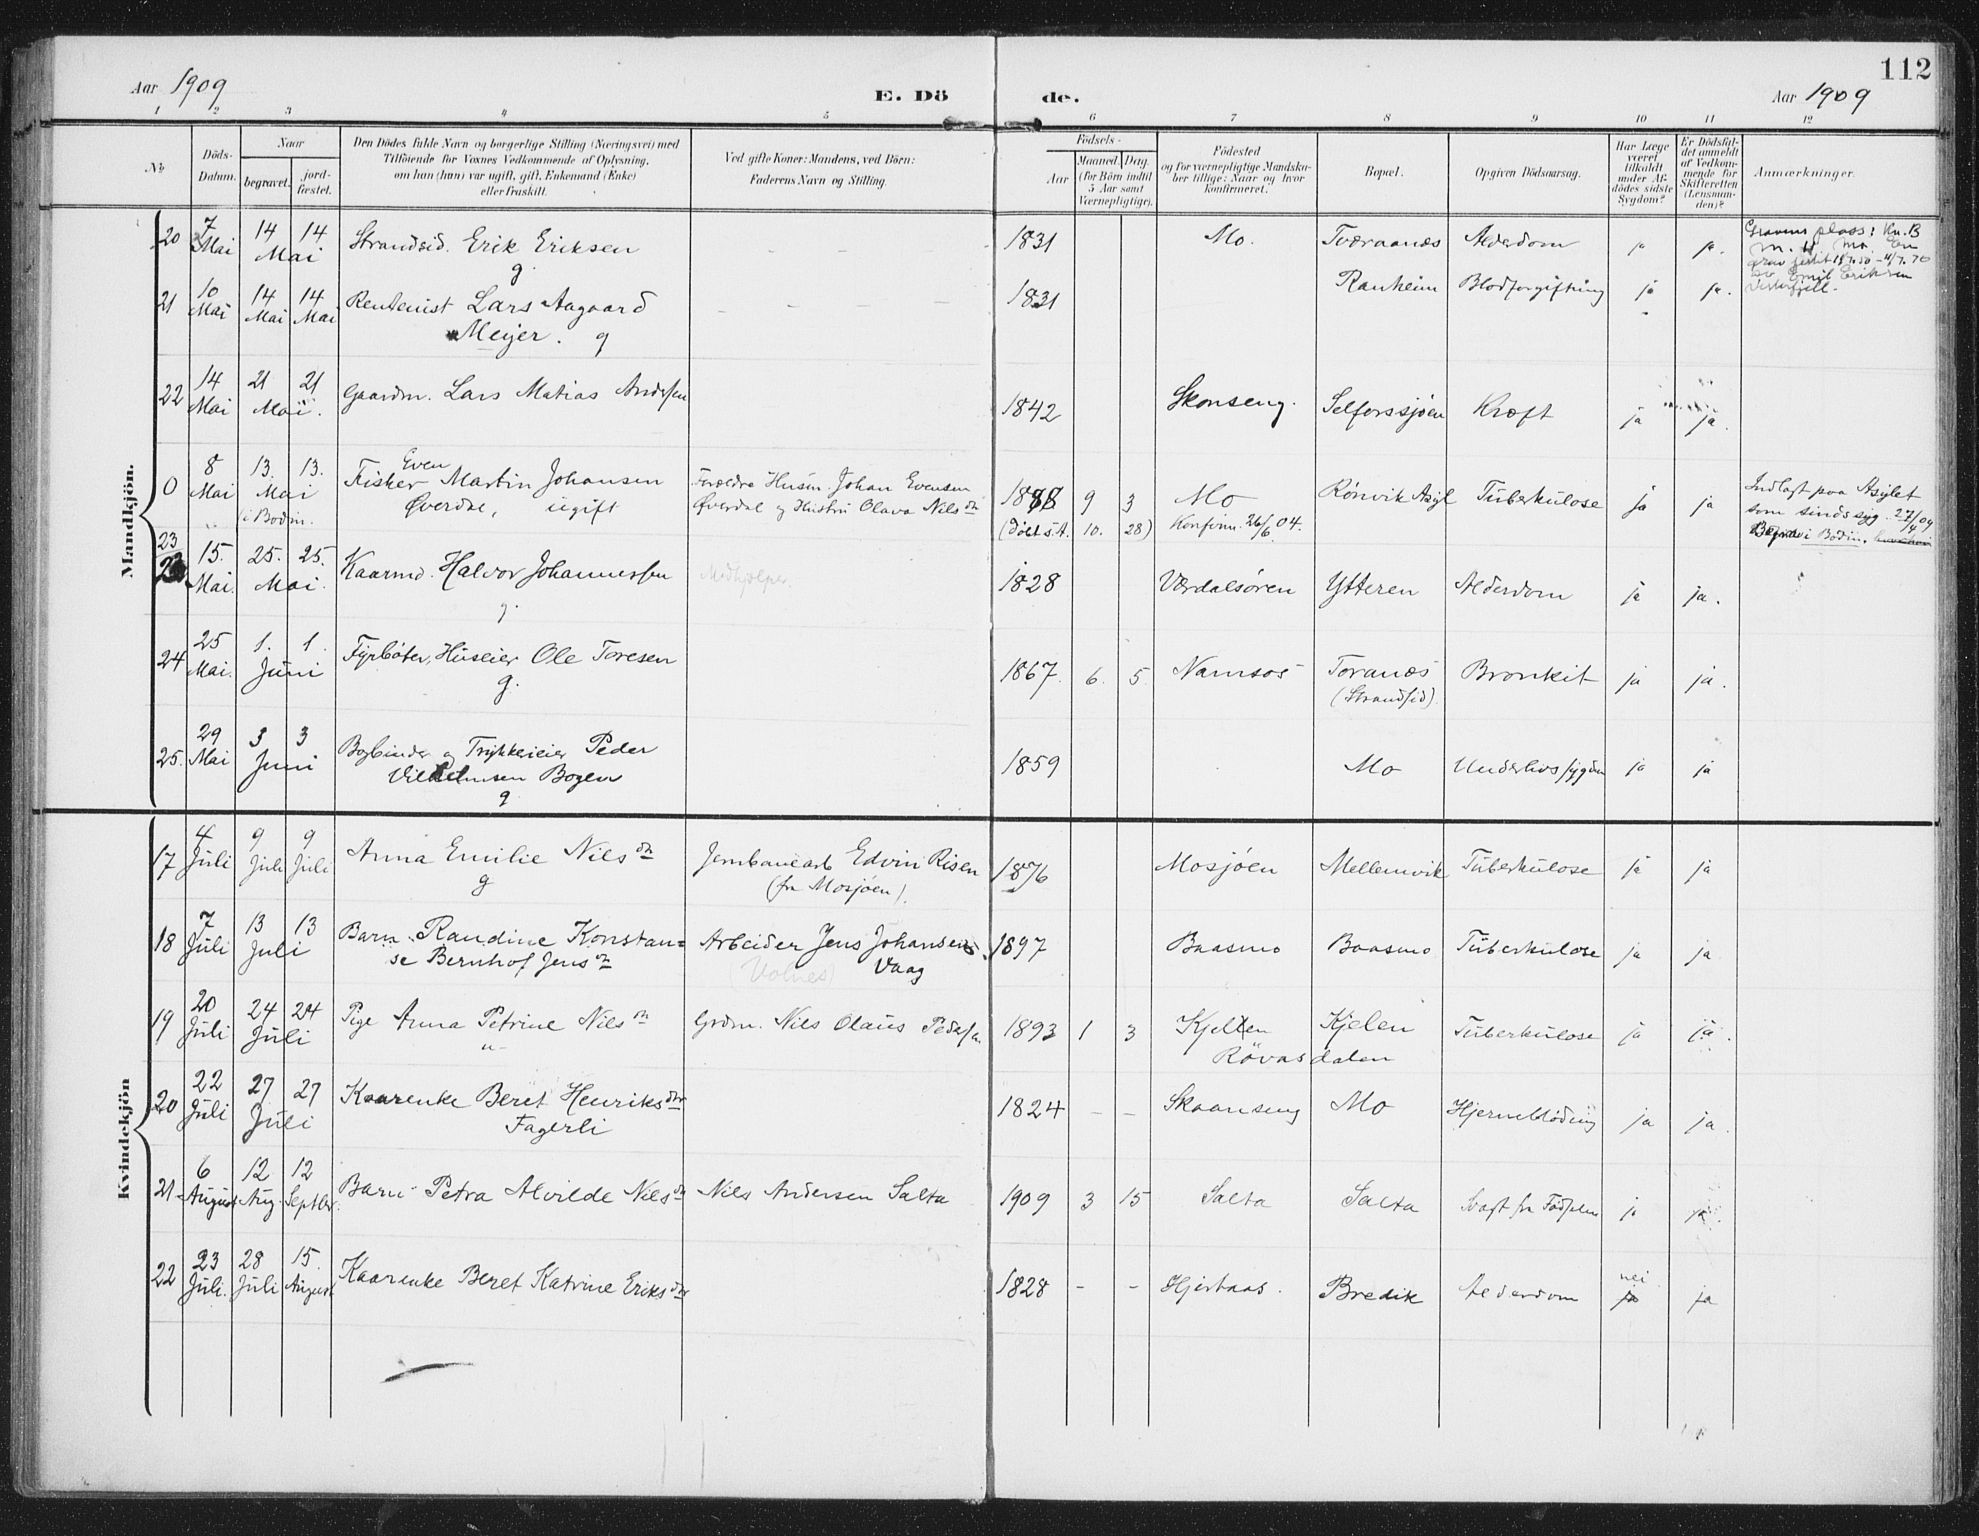 112
Aar 1909
E. Dö de.
Aar 1909
1 2 3 4 5 6 7 8 9 10 11 12
No
Döds-
Datum.
Naar
begravet.
jord-
fæstet.
Den Dödes fulde Navn og borgerlige Stilling (Næringsvei) med
Tilföiende for Voxnes Vedkommende af Oplysning,
om han (hun) var ugift, gift, Enkemand (Enke)
eller fraskilt.
Ved gifte Koner: Mandens, ved Börn:
Faderens Navn og Stilling.
Födsels-
Aar
Maaned. Dag.
(for Börn indtil
5 Aar samt
Værnepligtige).
Födested
og for værnepligtige Mandska-
ber tillige: Naar og hvor
konfirmeret.
Bopæl.
Opgiven Dödsaarsag.
Har Læge
været
tilkaldt
under Af-
dödes sidste
Sygdom?
Er Dödsfal-
det anmeldt
af Vedkom-
mende for
Skifteretten
(Lensman-
den)?
Anmærkninger.
Mandkjön.
20 7 Mai 14 14 Mai Strandsid. Erik Eriksen g. 1831 Mo. Tværaanæs Alderdom ja ja.
Gravens plass: Kv. B
21 10 Mai 14 Mai 14 Mai Rentenist Lars Aagaard
Meyer. g 1831 Ranheim Blodforgiftning ja ja.
22 14 Mai 21 21 Mai. Gaardm. Lars Matias Andersen 1842 Skonseng. Selforssjøen Kræft ja ja.
0 8 Mai 13. 13. Mai i Bodin. Fisker Even Martin Johansen
Øverdal, ugift
Forældre Husm. Johan Evensen
Øverdal og Hustru Olava Nilsdtr
9 3 Mo Rønvik Asyl Tüberkulose ja ja
(døbt s. A. 10. 28) Konfirm. 26/6 04.
Indlagt paa Asylet
som sindssyg. 27/4 09
i Bodin.
23 15. Mai. 25. 25. Mai. Kaarmd. Halvor Johannessen g. Medhjelper. 1828 Værdalsøren Ytteren Alderdom ja ja.
24 25 Mai. 1. 1. Juni Fyrbøter, Huseier Ole Toresen g. 1867. 6. 5. Namsos Toranæs
(Strandsid). Bronkit ja ja.
25. 29 Mai 3 3 Juni Bogbinder og Trykkerieier Peder
Vilhelmsen Bogen
g 1859 Mo Underlivssygdom ja ja
Kvindekjön
17 4 Juli 9 Juli 9 Juli Anna Emilie Nilsdtr g Jernbanearb Edvin Risen
(fra Mosjøen). 1876 Mosjøen Mellemvik Tüberkulose ja ja
18 7 Juli 13 13 Juli Barn. Randine Konstan=
se Bernhof Jensdtr Arbeider Jens Johansen
(Volnes) Vaag 1897 Baasmo Baasmo Tüberkulose ja ja
19 20 Juli 24 24 Juli Pige Anna Petrine Nilsdtr Grdm. Nils Olaus Peders. 1893 1 3 Kjelen
Røvasdalen Kjelen Tüberkulose ja ja.
20 22 Juli 27 27 Juli Kaarenke Beret Henriksdtr
Fagerli 1824 - - Skaanseng Mo Hjerneblødning ja ja.
21 6 August 12 Aug. 12 Septbr. Barn Petra Alvilde Nilsdtr Nils Andersen Salta 1909 3 15 Salta Salta Svagt fra Fødselen ja ja.
22 23 Juli. 28 Juli 15. August Kaarenke Beret Katrine Eriksdtr 1828 - - Hjertaas. Bredik Alderdom nei ja